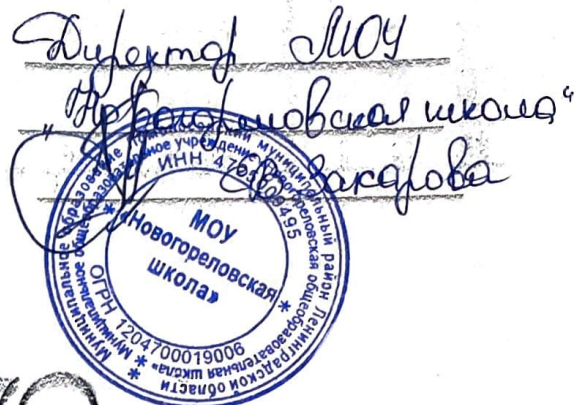 Директор МОУ
"Новогореловская школа"
Захарова
Муниципальное образование Ломоносовский муниципальный район Ленинградской области *
Муниципальное общеобразовательное учреждение «Новогореловская общеобразовательная школа» *
ИНН
МОУ
«Новогореловская
школа»
ОГРН 1204700019006